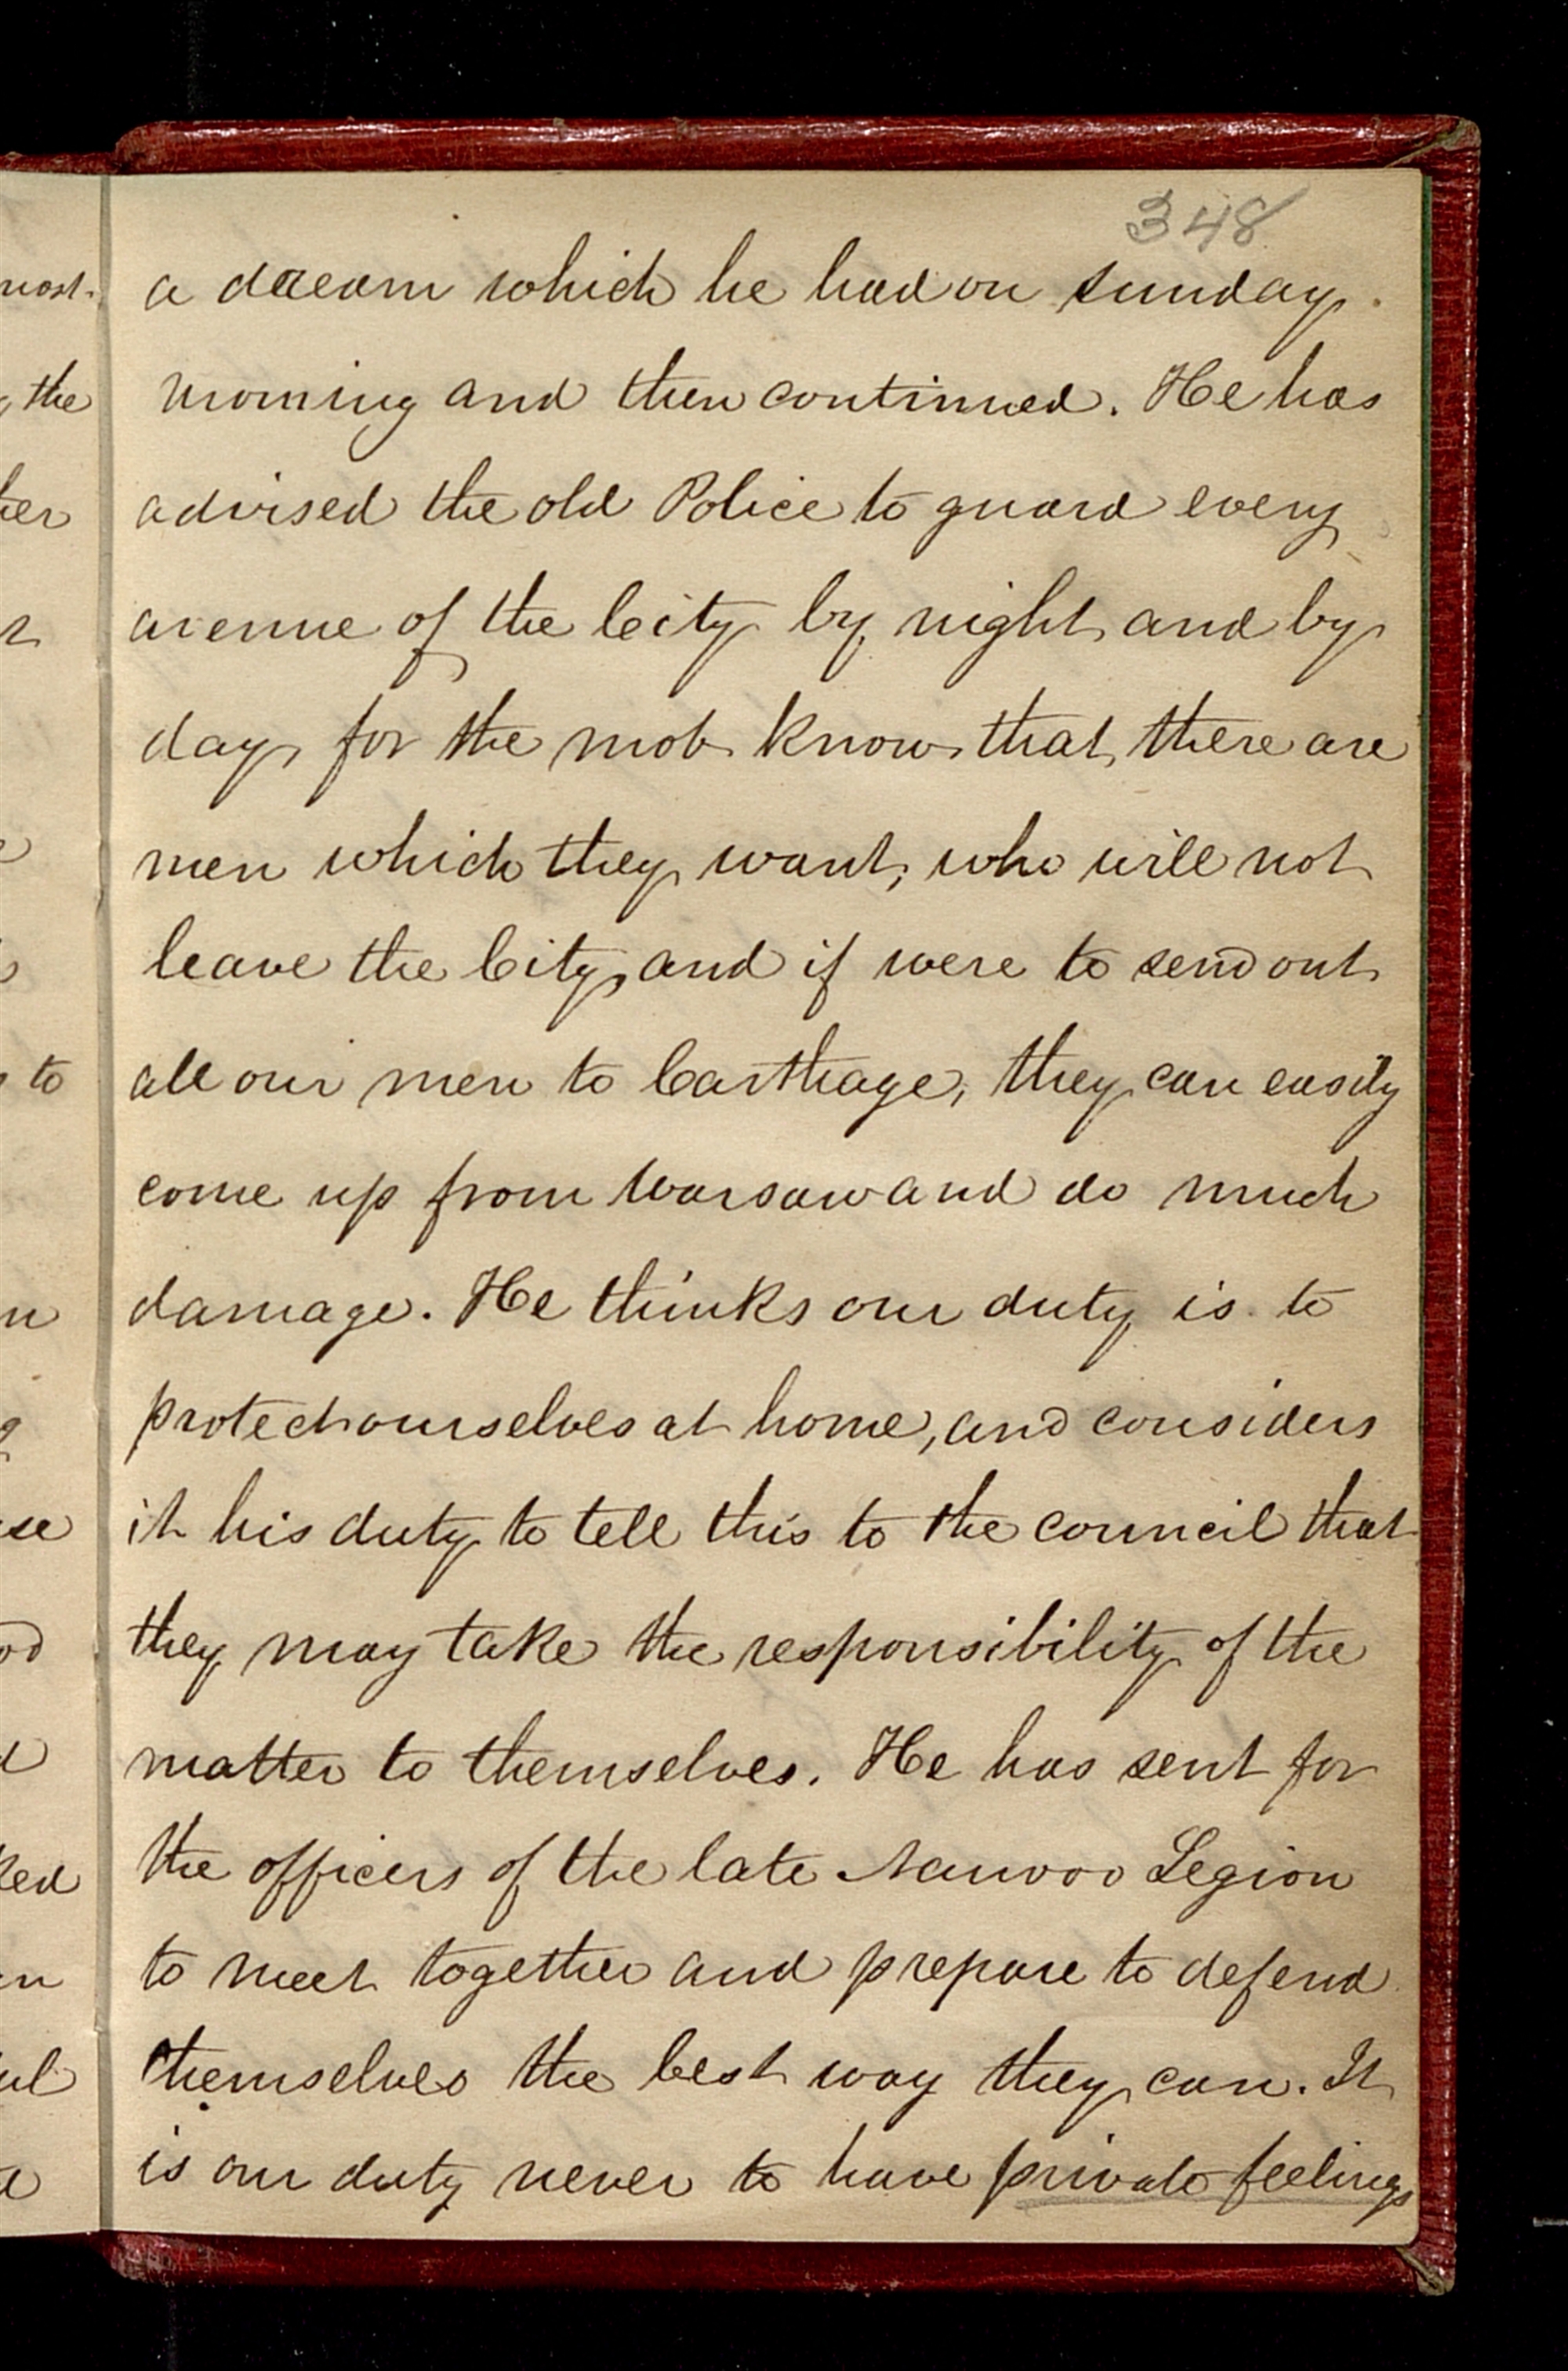 348
a dream which he had on Sunday.
morning and then continued. He has
advised the old Police to guard every
avenue of the City by night and by
day, for the mob know that there are
men which they want, who will not
leave the City, and if were to send out
all our men to Carthage, they can easily
come up from Warsaw and do much
damage. He thinks our duty is to
protect ourselves at home, and considers
it his duty to tell this to the council that
they may take the responsibility of the
matter to themselves. He has sent for
the officers of the late Nauvoo Legion
to meet together and prepare to defend
themselves the best way they can. It
is our duty never to have private feelings